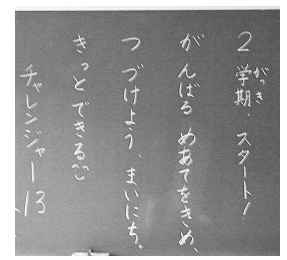 2学期、スタート!
がんばる めあてをきめ、
つづけよう、まいにち。
きっと できる^^
チャレンジャー13